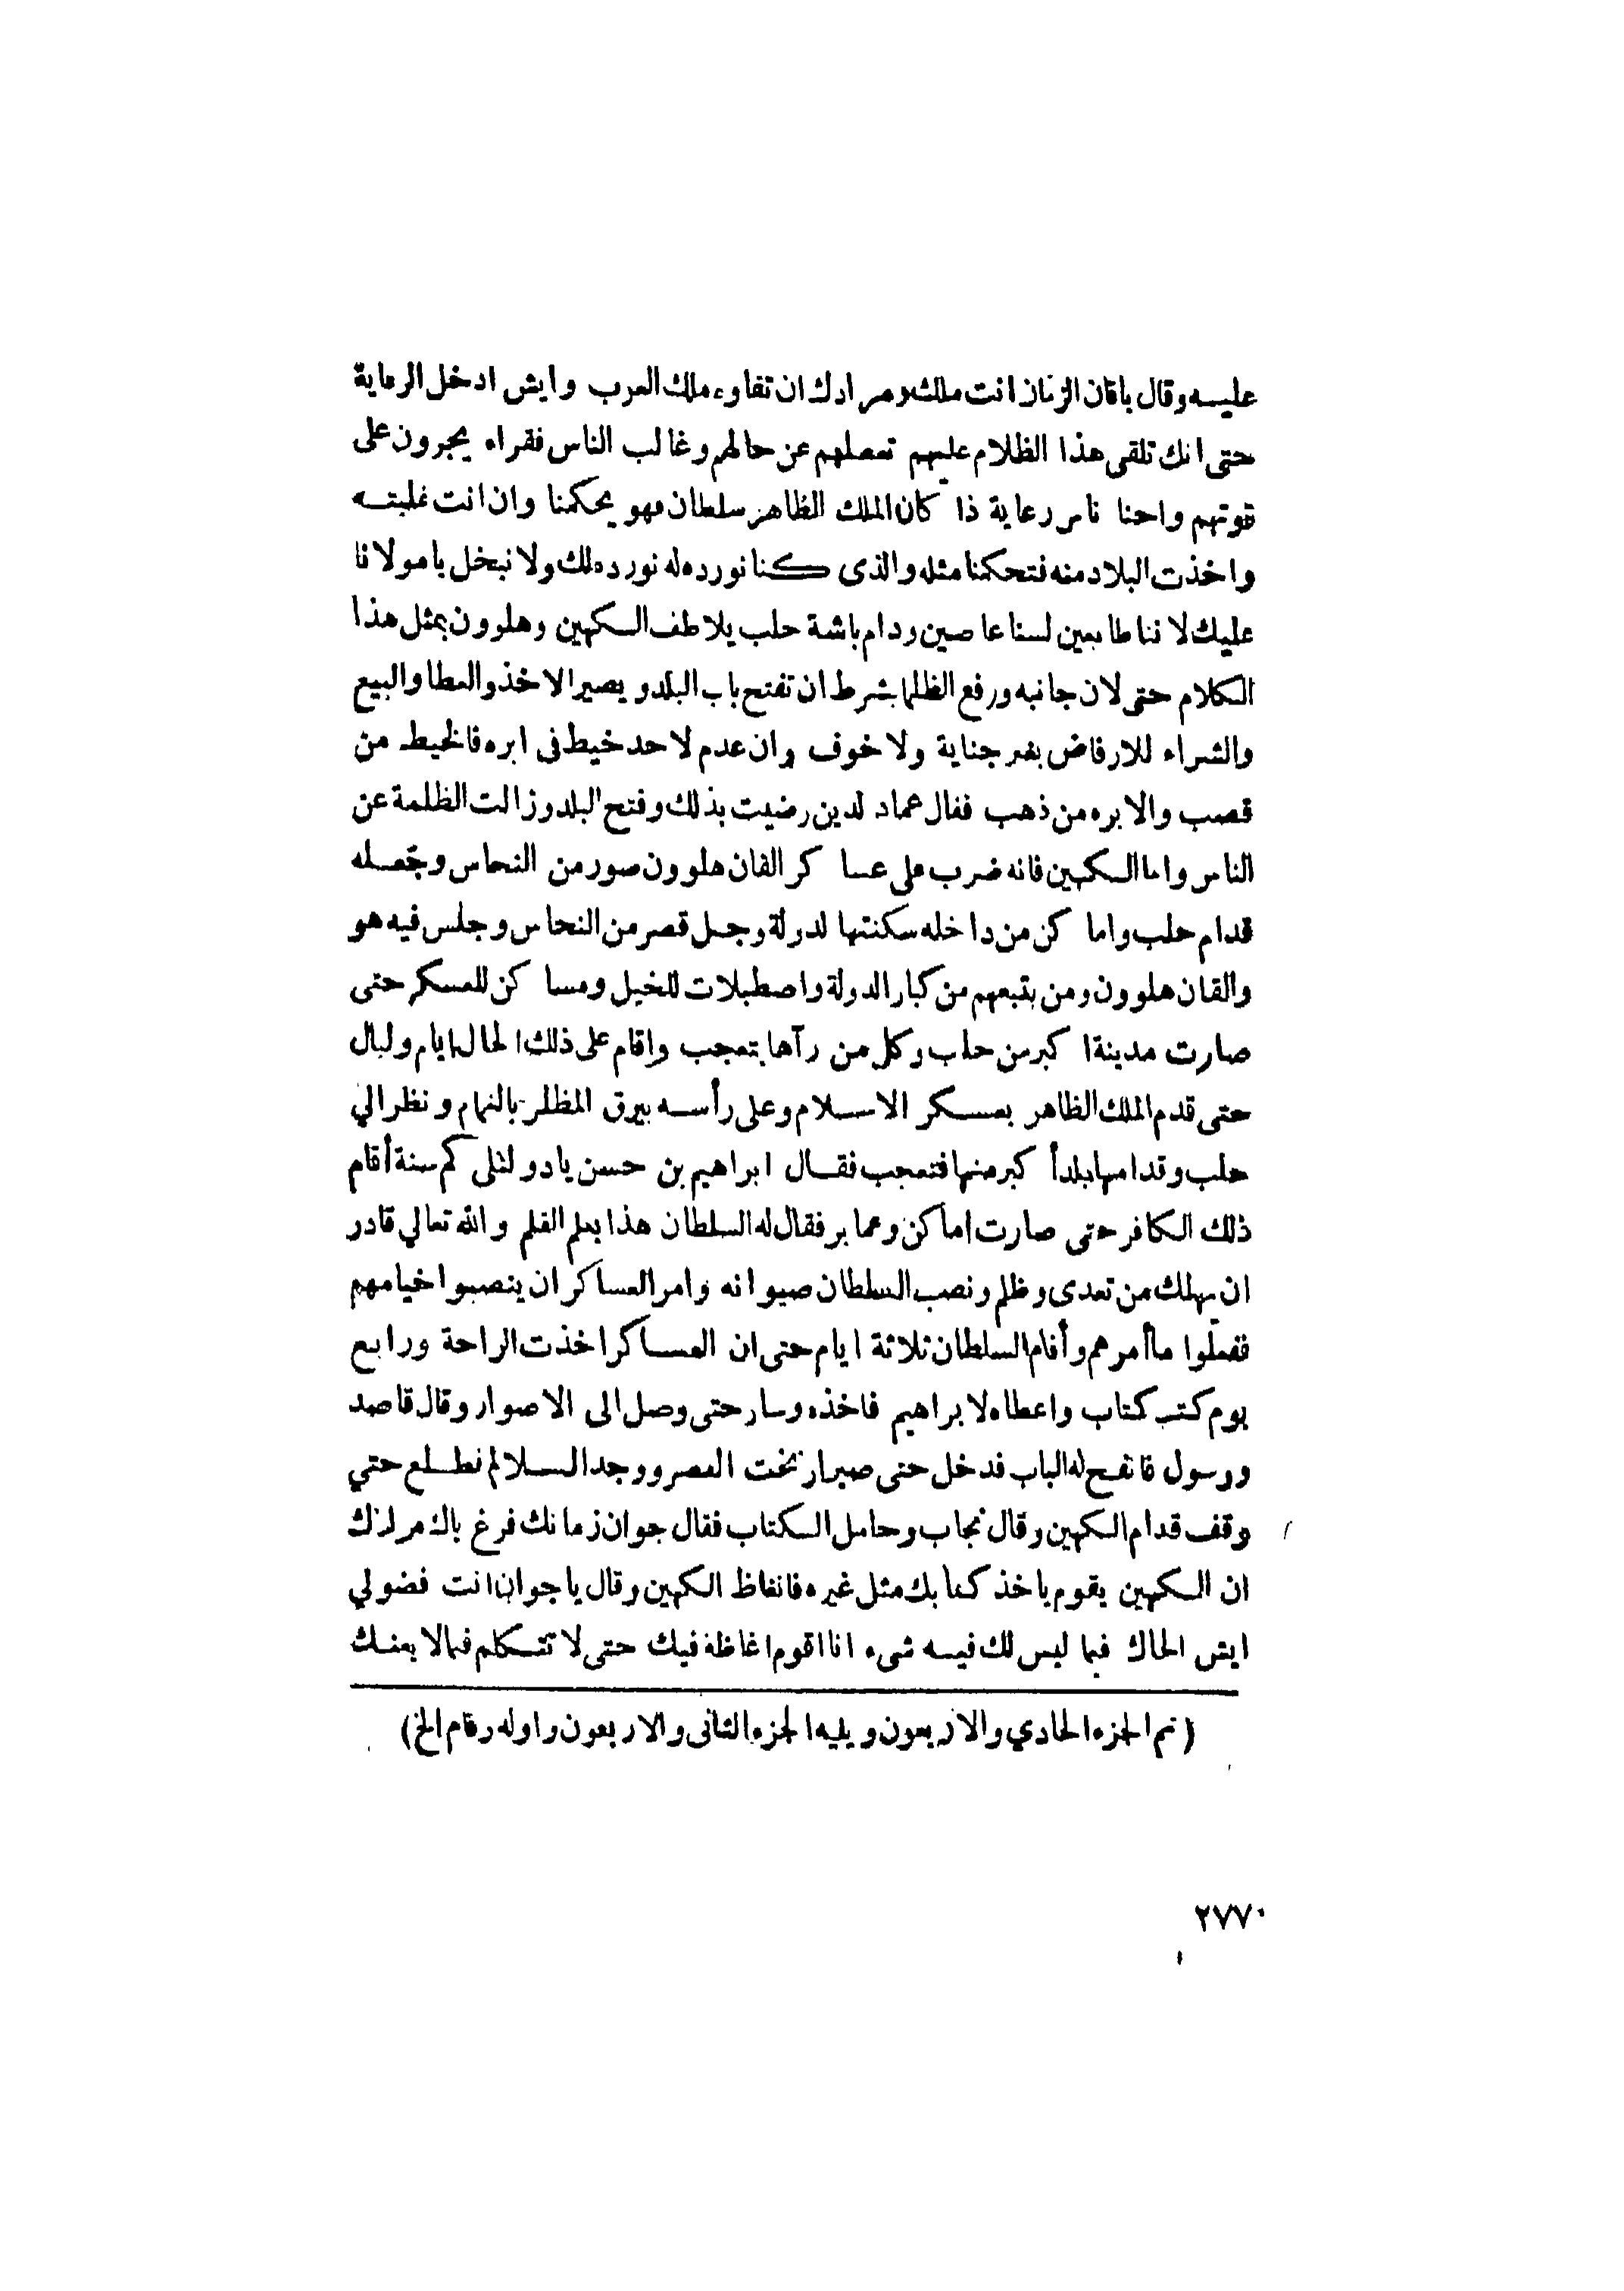 عليه وقال ياقان الزمان انت ملك ومرادك ان تقاوم ملك العرب وايش ادخل الرعاية
حتى انك تلقى هذا الظلام عليهم تعطلهم عن حالهم وغالب الناس فقراء يجرون على
قوتهم واحنا ناس رعاية ذا كان الملك الظاهر سلطان فهو يحكمنا وان انت غلبته
واخذت البلاد منه فتحكمنا مثله والذى كنا نورده له نورده لك ولا نبخل يامولانا
عليك لاننا طايعين لسنا عاصين ودام باشة حلب يلاطف الكهين وهلوون بمثل هذا
الكلام حتى لان جانبه ورفع الظلما بشرط ان تفتح باب البلد ويصير الاخذ والعطا والبيع
والشراء للارفاض بغير جناية ولا خوف وان عدم لاحد خيط فى ابره فالخيط من
قصب والابره من ذهب فقال عماد لدين رضيت بذلك وفتح البلد وزالت الظلمة عن
الناس واما الكهين فانه ضرب على عساكر القان هلوون صور من النحاس وجعله
قدام حلب واماكن من داخله سكنتها لدولة وجعل قصر من النحاس وجلس فيه هو
والقان هلوون ومن يتبعهم من كبار الدولة واصطبلات للخيل ومساكن للعسكر حتى
صارت مدينة اكبر من حلب وكل من رآها يتعجب واقام على ذلك الحال ايام وليال
حتى قدم الملك الظاهر بعسكر الاسلام وعلى رأسه بيرق المظلل بالغمام ونظر الي
حلب وقدامها بلدأ كبر منها فتعجب فقال ابراهيم بن حسن يادولتلى كم سنة أقام
ذلك الكافر حتى صارت اماكن وعماير فقال له السلطان هذا بعلم القلم والله تعالي قادر
ان يهلك من تعدى وظلم ونصب السلطان صيوانه وامر العساكر ان ينصبوا خيامهم
ففعلوا ماأمرهم وأقام السلطان ثلاثة ايام حتى ان العساكر اخذت الراحة ورابع
يوم كتب كتاب واعطاه لابراهيم فاخذه وسار حتى وصل الى الاصوار وقال قاصد
ورسول فانفتح له الباب فدخل حتى صار تحت القصر ووجد السلالم فطلع حتي
وقف قدام الكهين وقال نجاب وحامل الكتاب فقال جوان زمانك فرغ بالك مرادك
ان الكهين يقوم ياخذ كتابك مثل غيره فانغاظ الكهين وقال ياجوان انت فضولي
ايش الحاك فيما ليس لك فيه شىء انا اقوم اغاظة فيك حتى لا تتكلم فيمالا يعنيك
(تم الجزء الحادي والاربعون ويليه الجزء الثانى والاربعون واوله وقام الخ)
٢٧٧٠